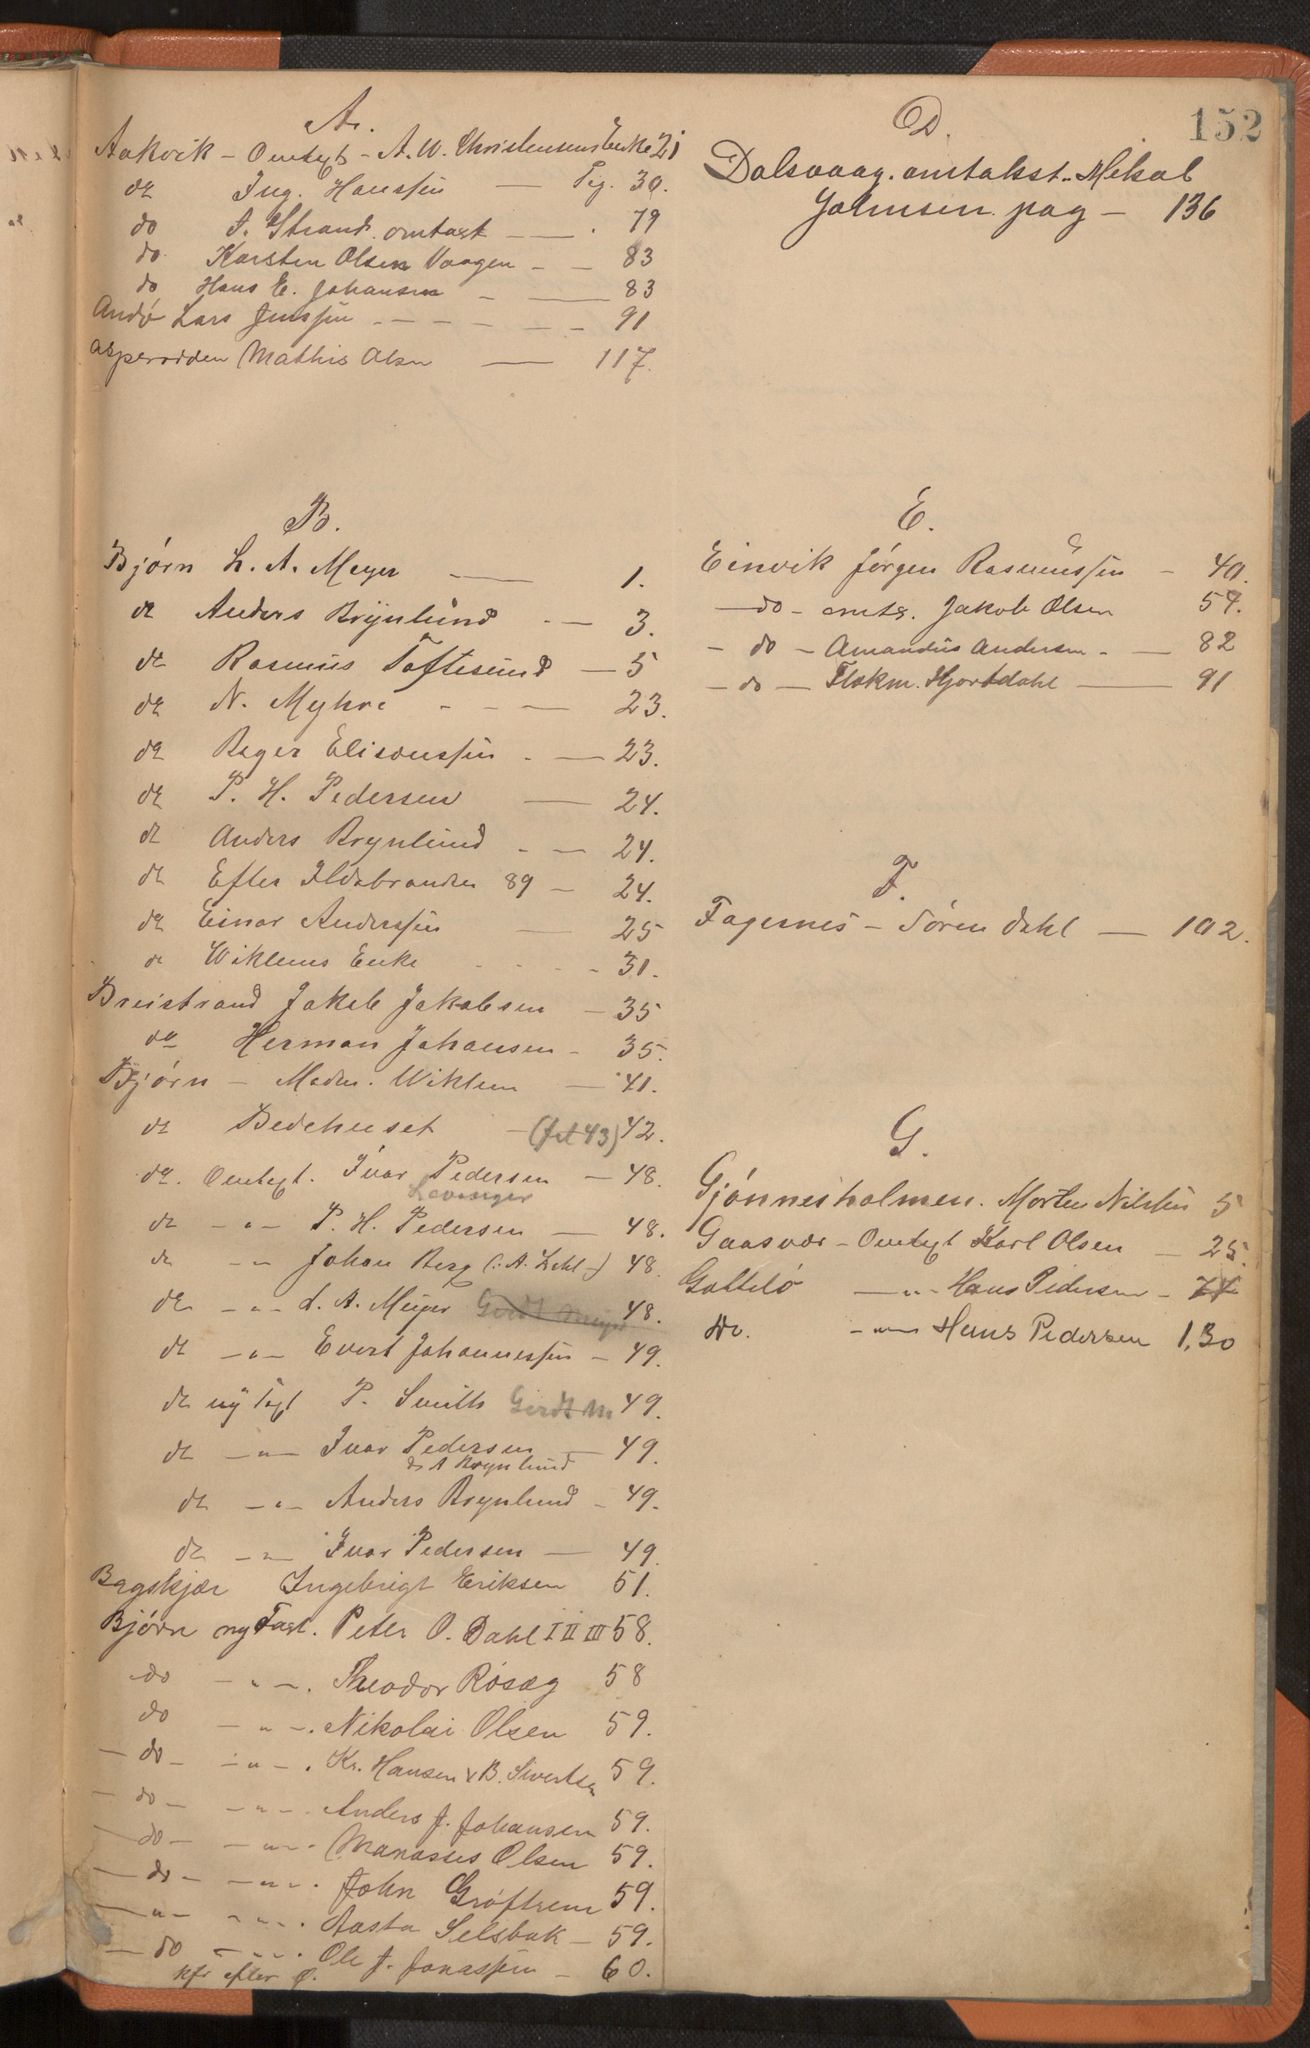 152
A.
Aakvik - Omtaxt - A. W. Christensens Enke 21
do Ing. Hanssen — Pag. 30.
do A. Strand. omtaxt — . 79
do Karsten Olsen Vaagen - - 83
do Hans E. Johansen - — 83
Andø Lars Jenssen - - - - - - 91
Mathis Olsen — 117.
B.
Bjørn L. A. Meyer — 1.
do Anders Brynlund - — 3.
do Rasmus Toftesund — 5
do N. Myhre - - — 23.
do Elisæussen - — 23.
do P. H. Pedersen — 24.
do Anders Brynlund - — 24.
do Efter Ildebranden 89 — 24.
do Einar Anderssen — 25
do Wiklems Enke - - - - 31.
Breistrand Jakob Jakobsen - 35
do Herman Johansen - 35.
Bjørn - Madm. Wiklem — 41.
do Bedehuset - (fol 43) 42.
do. Omtaxt. Ivar Pedersen — 48.
Levanger
do - " - P. H. Pedersen — 48.
do - " - Johan Berg (: A. Dahl -) 48.
do - " - L. A. Meyer Gerdt Meyer 48.
do - " - Evert Johannessen - 49.
do ny Taxt P. Smith Gerdt M 49.
do - " - Ivar Pedersen — 49.
do A Brynlund
do - " - Anders Brynlund - 49.
do - " - Ivar Pedersen — 49.
Bagskjær Ingebrigt Eriksen 51.
Bjørn ny Taxt. Peter O. Dahl I II III 58.
do - " -. Theodor Rosæg 58
do - " -. Nikolai Olsen 59.
- do - - " -. Kr. Hansen & B. Sivertsen 59.
- do - - " -. Anders J. Johansen 59.
- do - - " -. Manasses Olsen 59.
- do - - " -. John Grøftrem 59.
- " - - " -. Aasta Selsbak - 59.
- do - " -. Ole J. Jonassen - 60.
kfr efter Ø.
D.
Dalsvaag. omtakst. Mikal
Johnsen. pag - 136
E.
Einvik Jørgen Rasmussen - 40.
- do - omtx. Jakob Olsen 54.
- do - Amandus Andersen - — 82
- do - Flokm. Hjortdahl — 91
F.
Fagernes - Søren Dahl — 102.
G.
Gjønnesholmen. Morten Nilssen 5
Gaasvær - Omtaxt Karl Olsen — 25.
Galtelø - " - Hans Pedersen - 77
Do. - " - Hans Pedersen 130